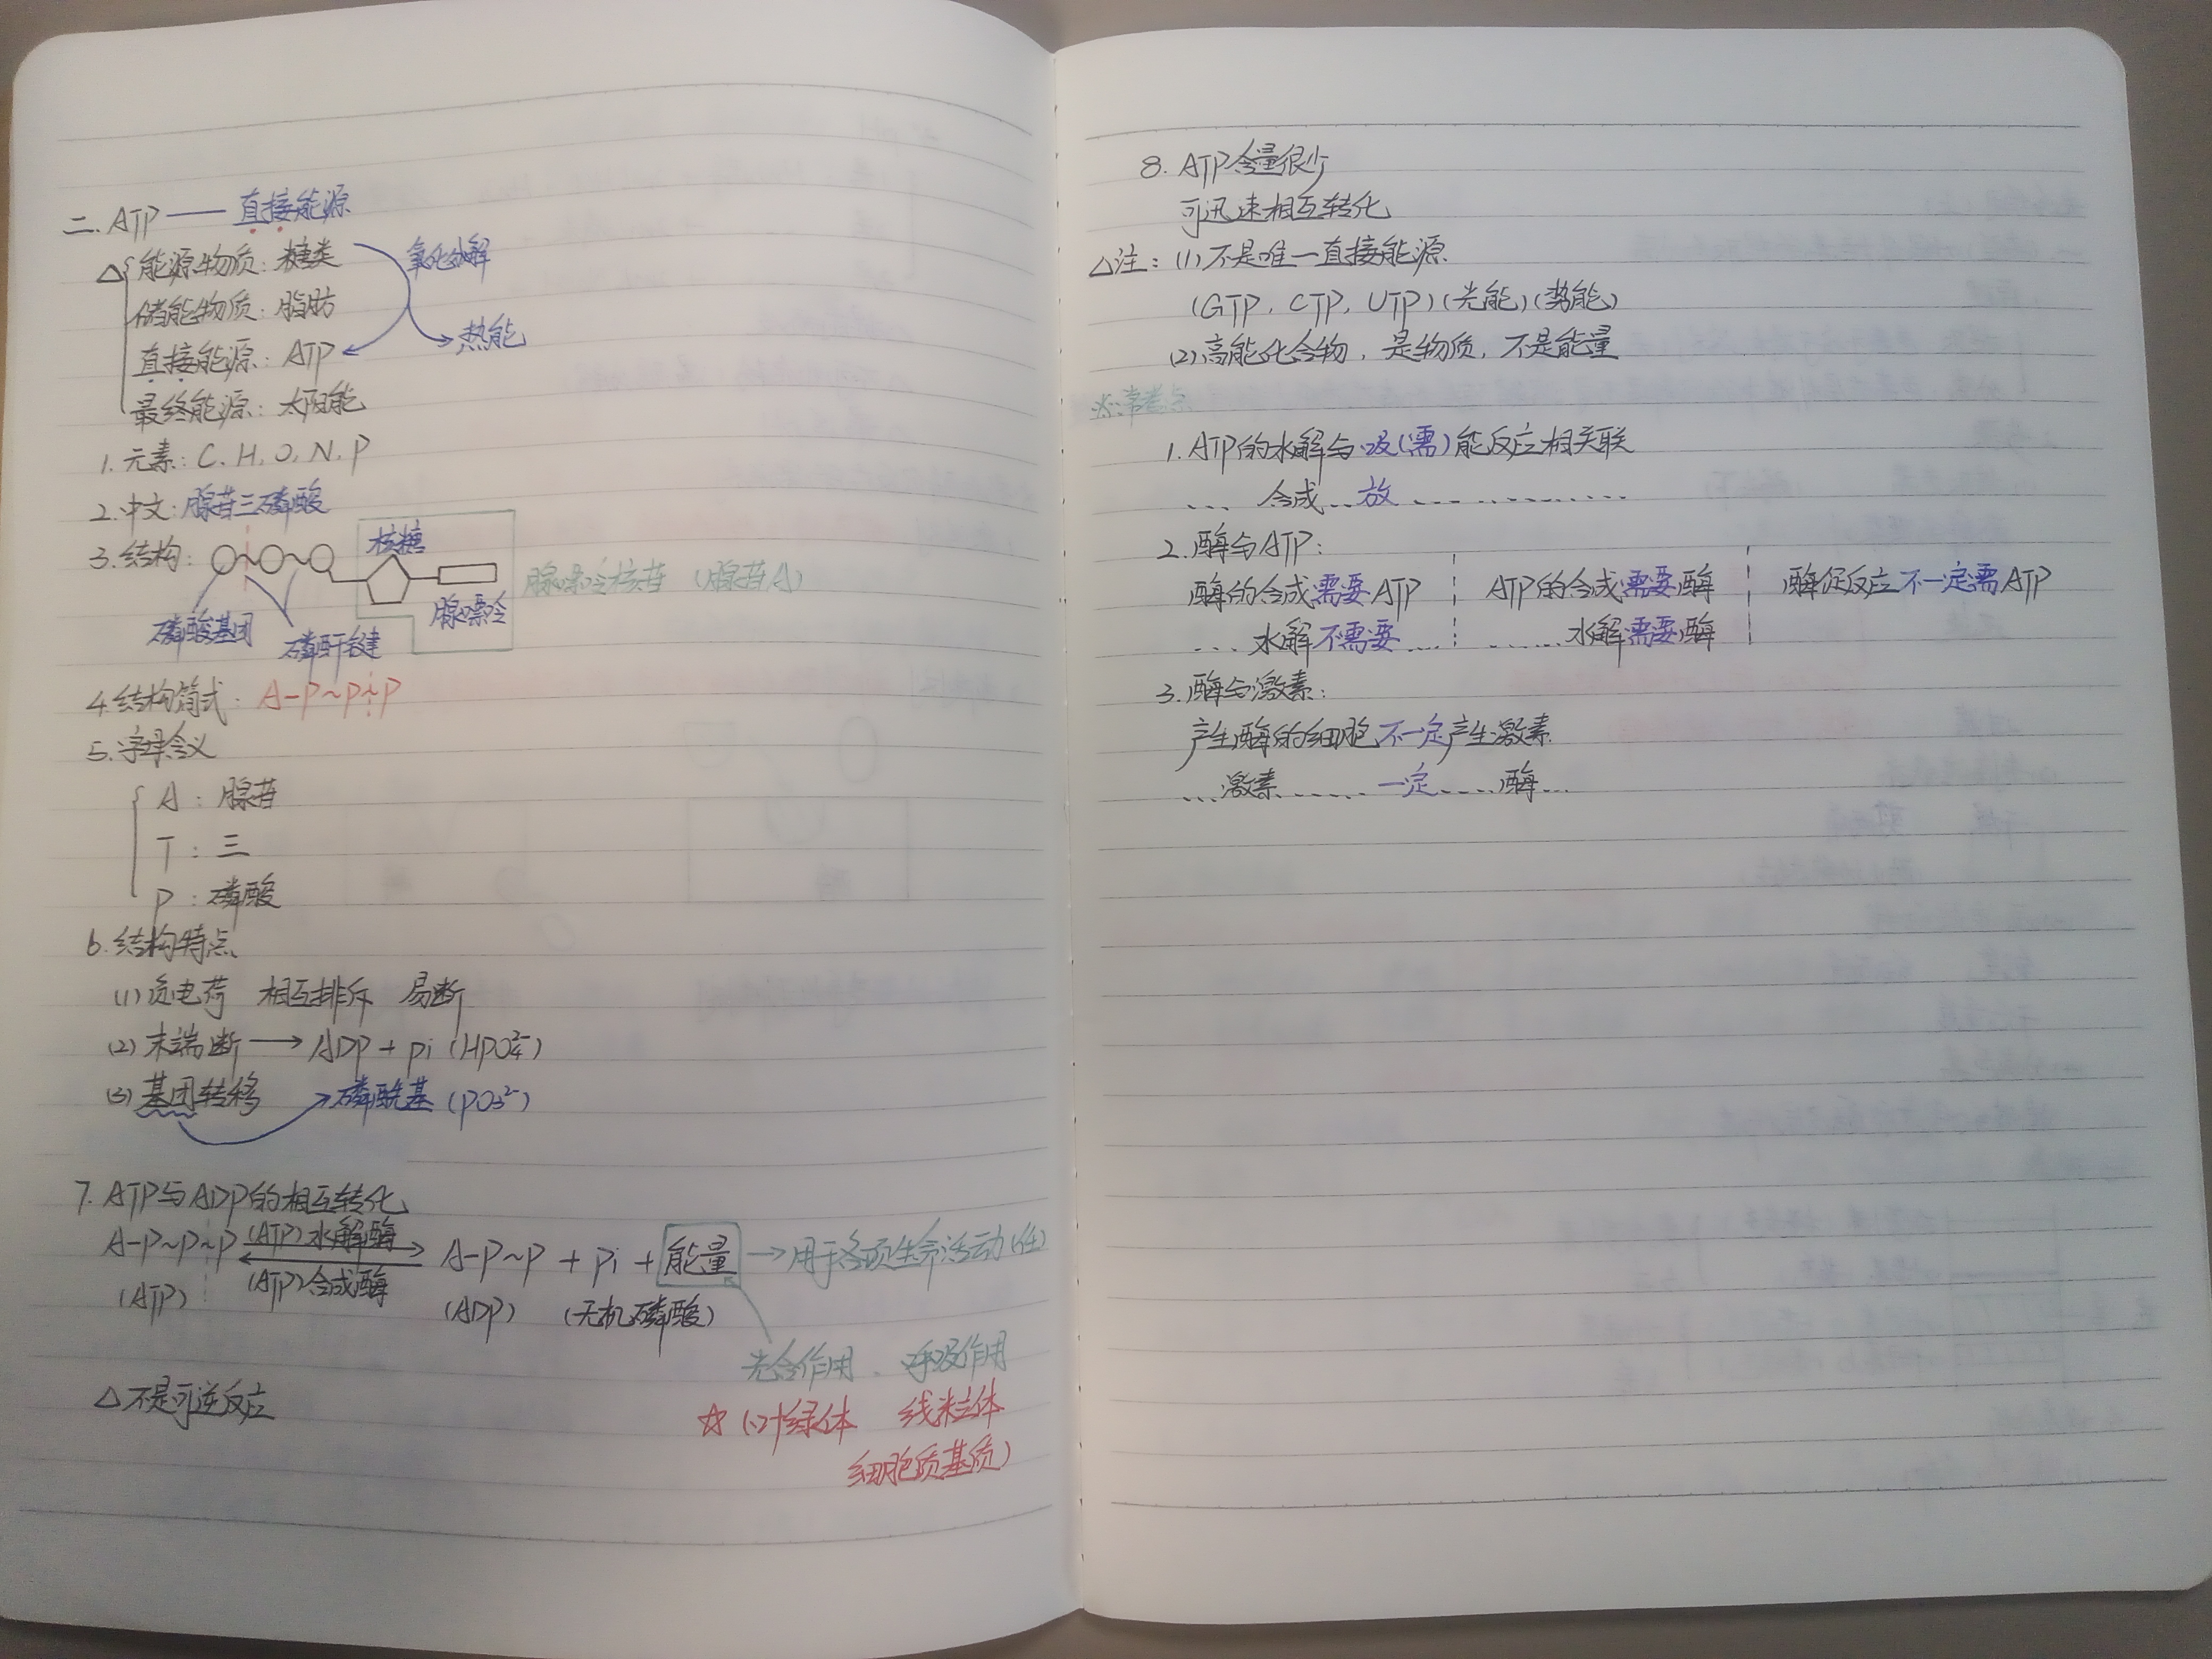 二. ATP —— 直接能源
△{能源物质: 糖类 氧化分解
储能物质: 脂肪
直接能源: ATP 热能
最终能源: 太阳能
1. 元素: C. H. O. N. P
2. 中文: 腺苷三磷酸
3. 结构: 核糖
腺嘌呤核苷 (腺苷A)
磷酸基团 磷酐键 腺嘌呤
4. 结构简式: A-P~P~P
5. 字母含义
A: 腺苷
T: 三
P: 磷酸
6. 结构特点
(1) 负电荷 相互排斥 易断
(2) 末端断 → ADP + pi (HPO₄²⁻)
(3) 基团转移 → 磷酰基 (PO₃²⁻)
7. ATP与ADP的相互转化
(ATP)水解酶
A-P~P~P ⇌ A-P~P + Pi + 能量 → 用于各项生命活动
(ATP)合成酶
(ATP) (ADP) (无机磷酸)
光合作用、呼吸作用
△不是可逆反应
☆(叶绿体 线粒体
细胞质基质)
8. ATP含量很少
可迅速相互转化
△注: (1) 不是唯一直接能源
(GTP, CTP, UTP)(光能)(热能)
(2) 高能化合物, 是物质, 不是能量
※常考点
1. ATP的水解与吸(需)能反应相关联
... 合成...放............
2. 酶与ATP:
酶的合成需要ATP ATP的合成需要酶 酶促反应不一定需ATP
... 水解不需要... ......水解需要酶
3. 酶与激素:
产生酶的细胞不一定产生激素
...激素......一定....酶...